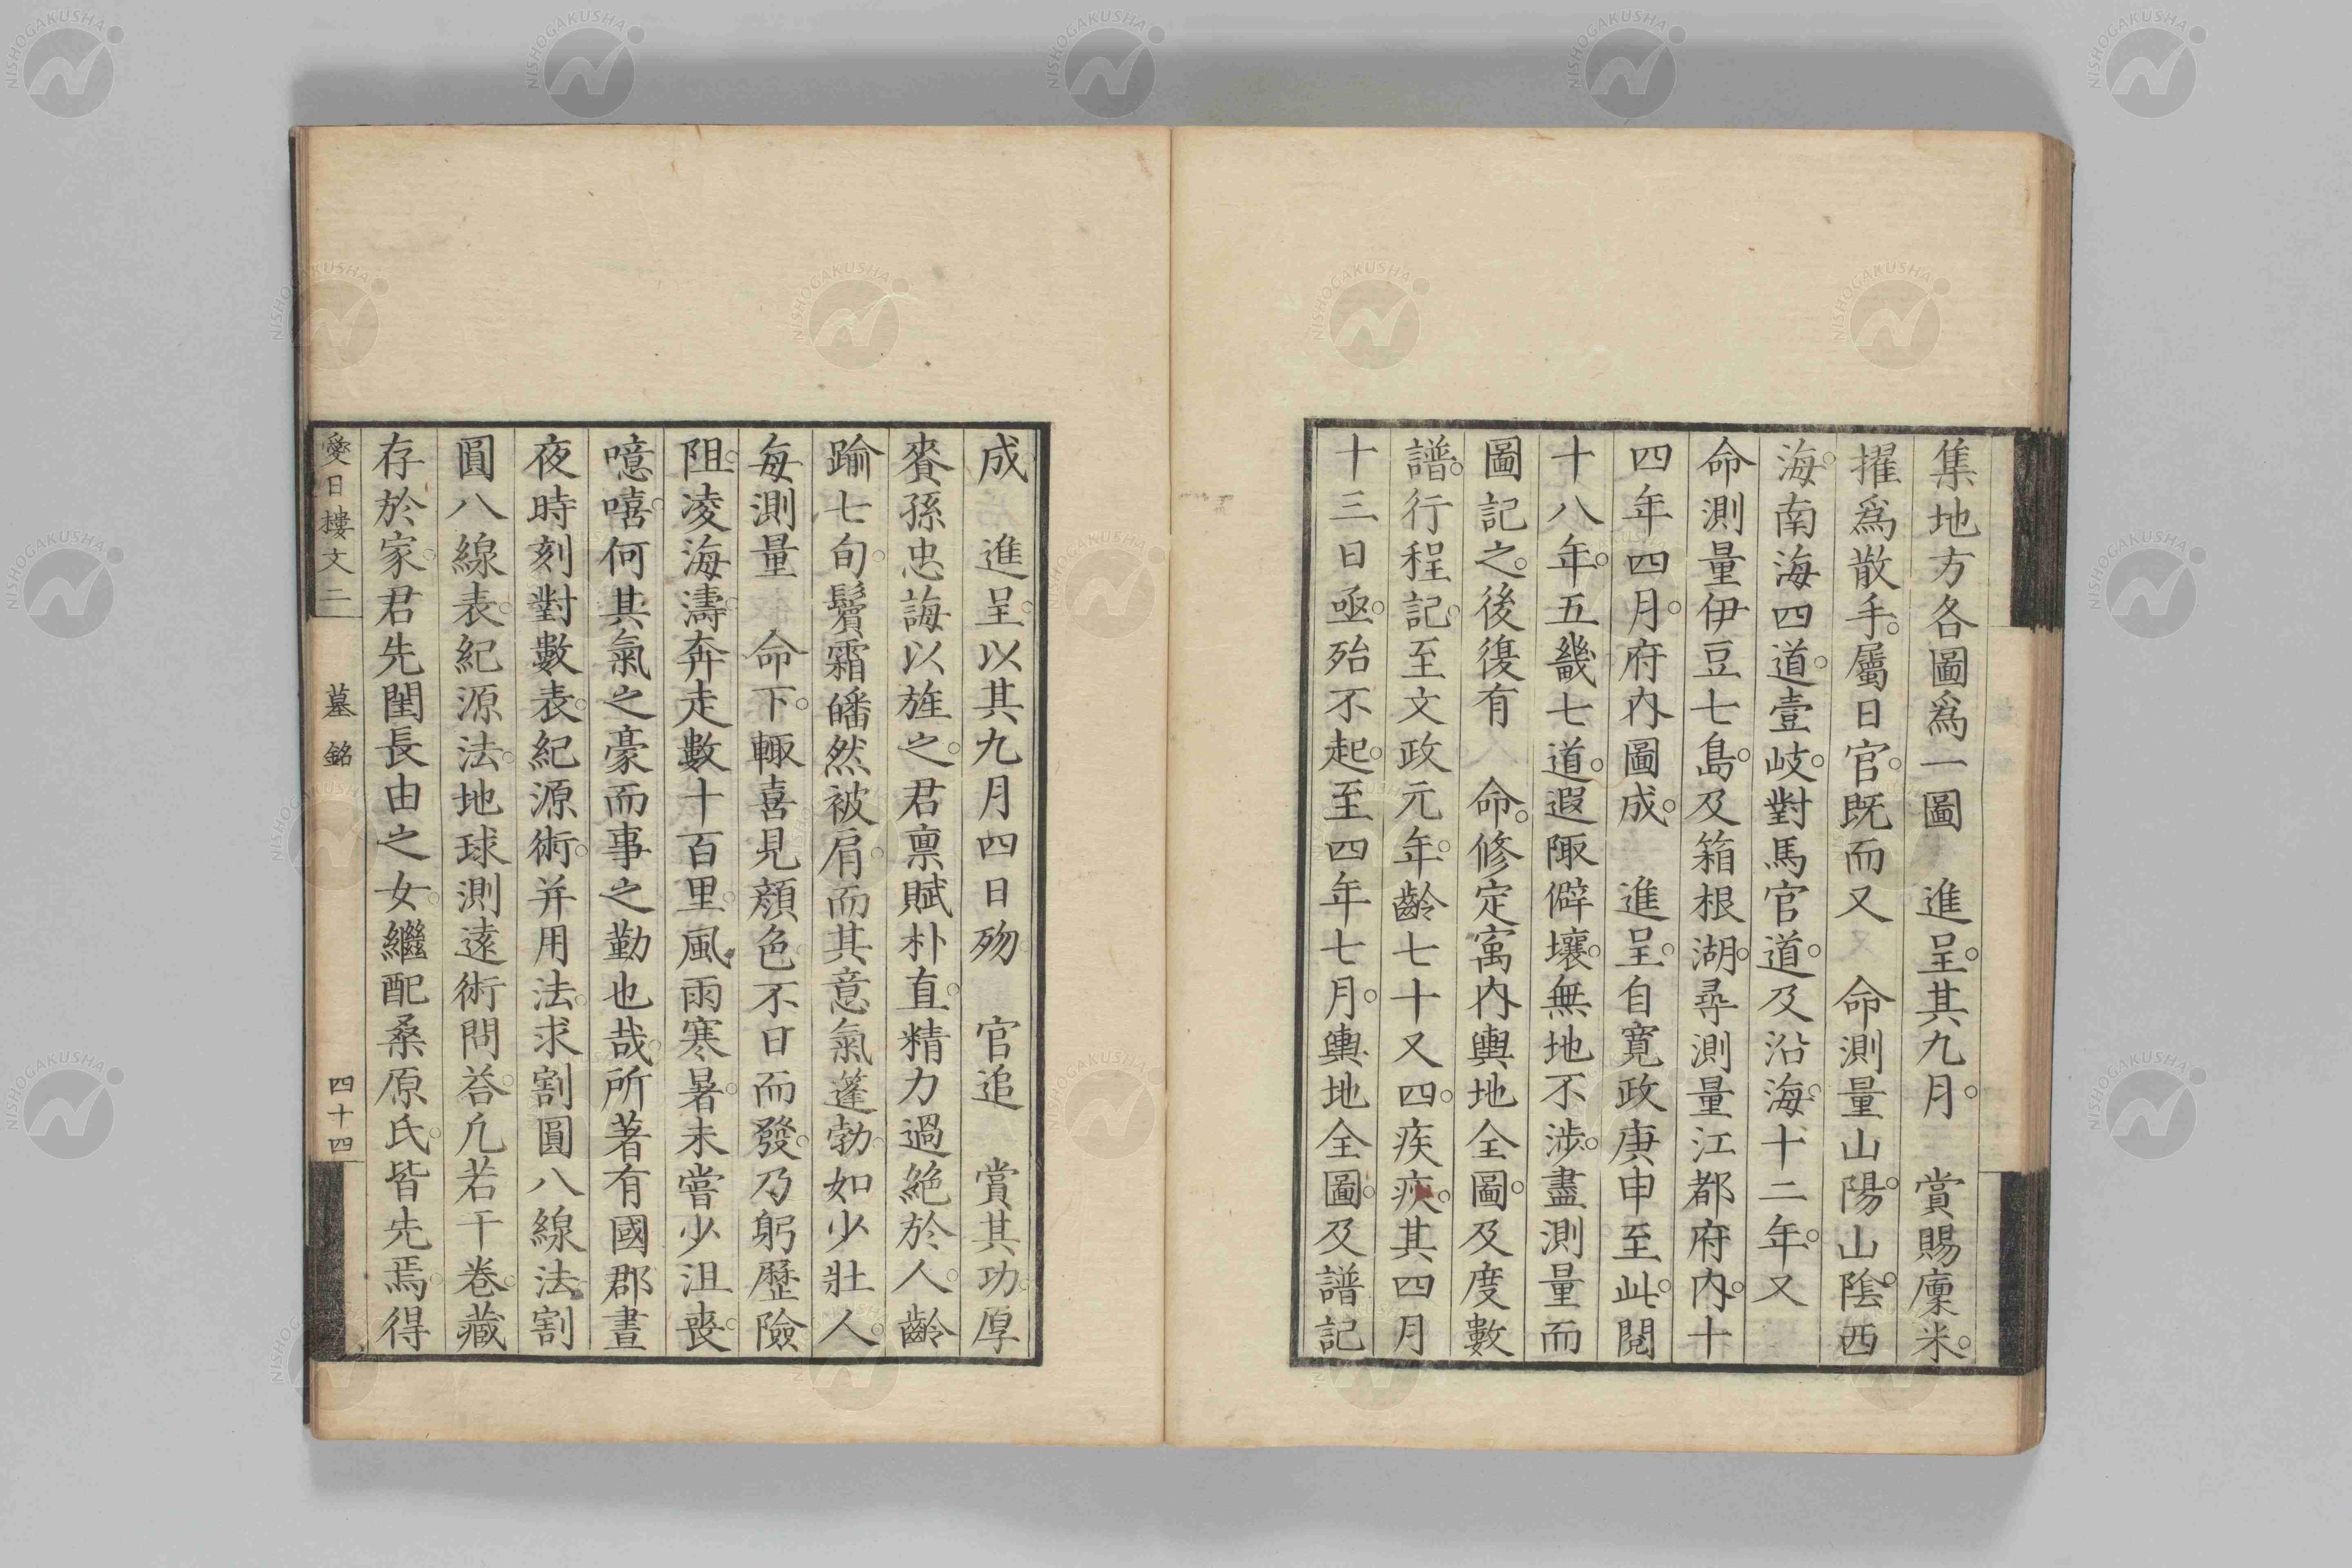 集地方各圖爲一圖　進呈。其九月。　賞賜廩米。
擢爲散手。屬日官。既而又　命測量山陽。山陰。西
海。南海四道。壹岐。對馬官道。及沿海。十二年。又
命測量伊豆七島。及箱根湖。尋測量江都府內。十
四年四月。府內圖成。　進呈。自寛政庚申至此。閱
十八年。五畿七道。遐陬僻壤。無地不涉。盡測量而
圖記之。後復有　命。修定寓內輿地全圖。及度數
譜。行程記。至文政元年。齡七十又四。疾疢。其四月
十三日亟。殆不起。至四年七月。輿地全圖。及譜記
成　進呈。以其九月四日歿　官追　賞其功。厚
賚孫忠誨以旌之。君禀賦朴直。精力過絶於人。齡
踰七旬。鬢霜皤然被肩。而其意氣蓬勃。如少壯人。
每測量　命下。輙喜見顔色。不日而發。乃躬歷險
阻。凌海濤。奔走數十百里。風雨寒暑。未嘗少沮喪。
噫嘻。何其氣之豪而事之勤也哉。所著有國郡晝
夜時刻對數表。紀源術。并用法。求割圓八線法。割
圓八線表。紀源法。地球測遠術問荅。凡若干卷。藏
存於家。君先閨長由之女。繼配桑原氏。皆先焉。得
愛日樓文二　墓銘　四十四